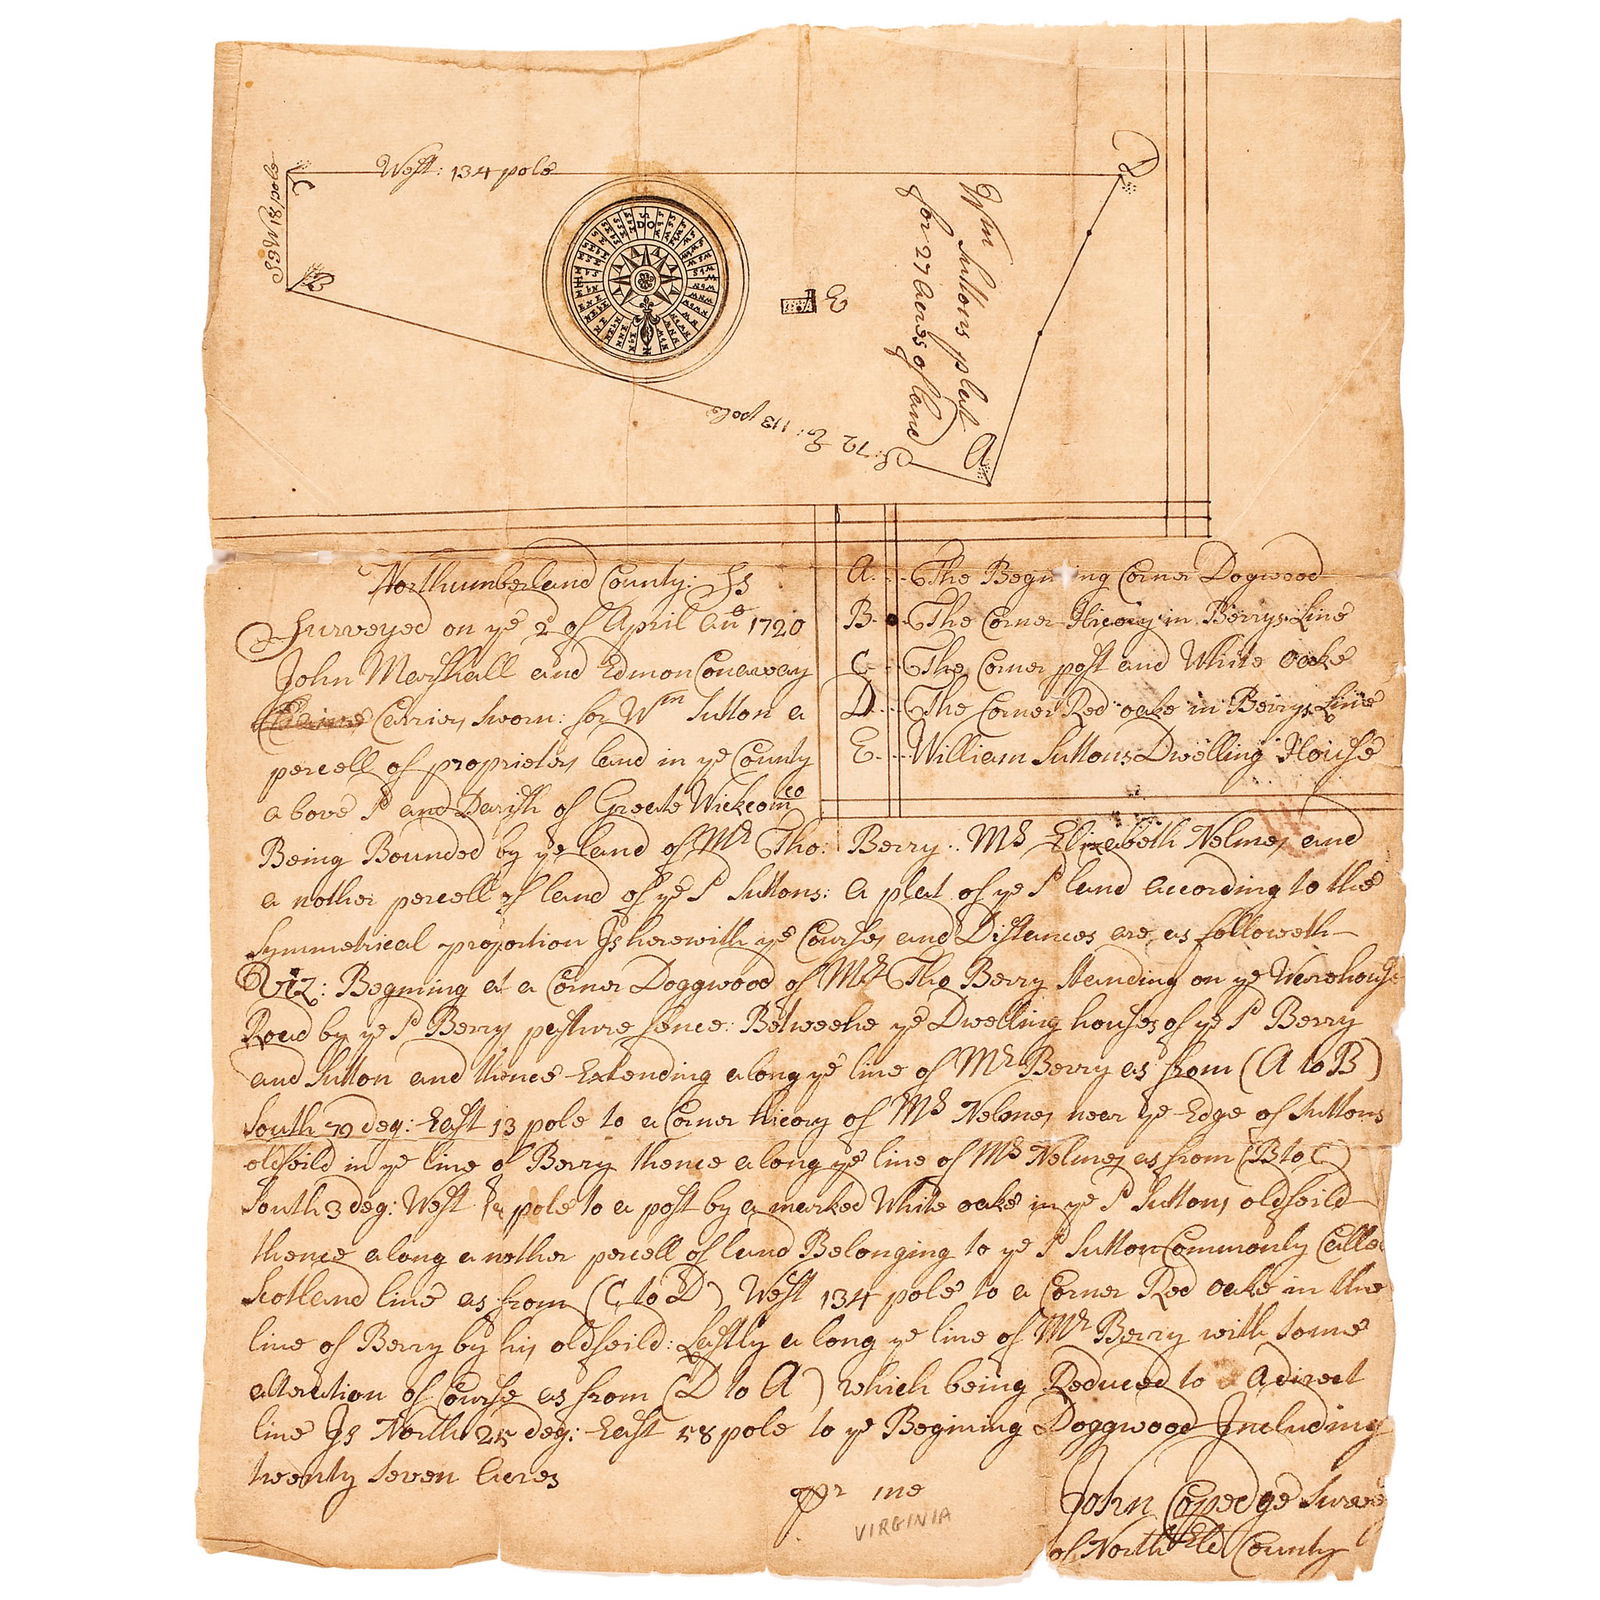 West: 134 pole
S 3 W 18 pole
C
B
D
E
A
Wm Suttons plat
for 27 Acres of land
S: 72 E: 113 pole
Northumberland County: Ss
Surveyed on ye 2 of April 1720
John Marshall and Edmon Conaway
Carriers Sworn: for Wm Sutton a
percell of proprietors land in ye County
above Sd and Parish of Greate Wickcomco
A. The Begining Corner Dogwood
B. The Corner Hicory in Berrys Line
C. The Corner post and White oake
D. The Corner Red oake in Berrys Line
E. William Suttons Dwelling House
Being Bounded by ye land of Mr Tho: Berry. Ms Elizabeth Nelmes and
a nother percell of land of ye Sd Suttons: a plat of ye Sd land according to the
Symmetrical proportion Is herewith ye Courses and Distances are as followeth
Viz: Begining at a Corner Doggwood of Mr Tho Berry standing on ye Warehouse
Road by ye Sd Berrys pasture fence: Betweene ye Dwelling houses of ye Sd Berry
and Sutton and thence Extending along ye line of Mr Berry as from (A to B)
South deg: East 13 pole to a Corner hicory of Ms Nelmes near ye Edge of Suttons
oldfeild in ye line of Berry thence along ye line of Ms Nelmes as from (B to C)
South 3 deg: West pole to a post by a marked White oake in ye Sd Suttons oldfeild
thence along a nother percell of land Belonging to ye Sd Sutton Commonly Calle
Scotland line as from (C to D) West 134 pole to a Corner Red oake in the
line of Berry by his oldfeild: Lastly along ye line of Mr Berry with some
alteration of Course as from (D to A) which being Reduced to a direct
line Is North 25 deg: East 58 pole to ye Begining Doggwood Including
twenty seven Acres
pr me
VIRGINIA
John Copedge Surve
of North Cld County